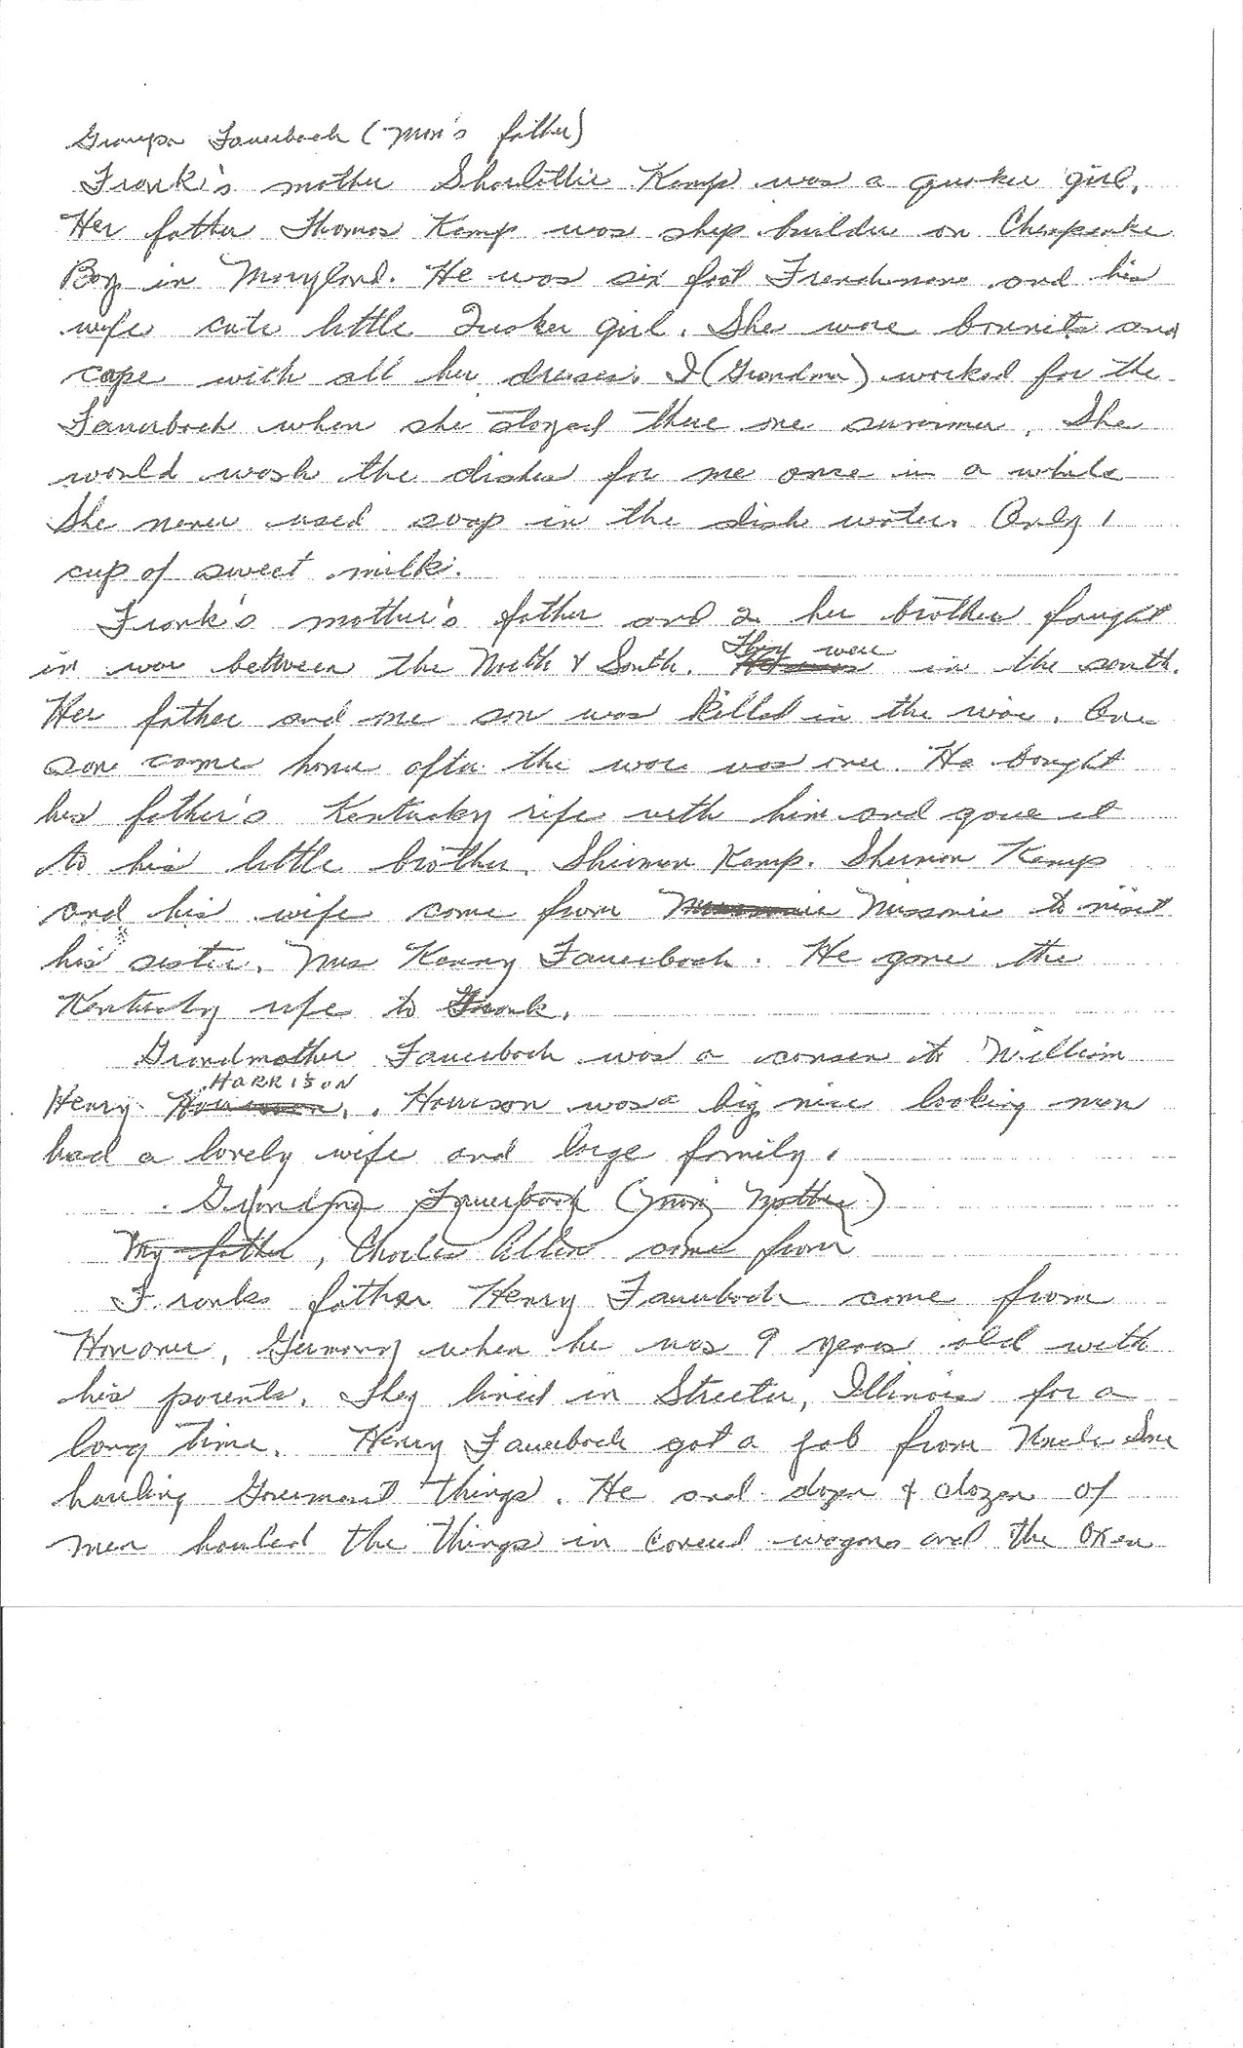 Grampa Fauerbach (Mom's father)
Frank's mother Sharlottie Kamp was a quaker girl.
Her father Thomas Kamp was ship builder on Cheapeake
Bay in Maryland. He was six foot Frenchman and his
wife cute little Quaker girl. She wore bonnets and
cape with all her dresses. I (Grandma) worked for the
Fauerbach when she stayed there one summer. She
would wash the dishes for me once in a while
She never used soap in the dish water. Only 1
cup of sweet milk.
Frank's mother's father and 2 her brother fought
in war between the North & South. They were in the south.
Her father and one son was killed in the war. One
son came home after the ware was over. He bought
his father's Kentucky rife with him and gave it
to his little brother, Shirmon Kamp. Shermon Kamp
and his wife come from Missourie to visit
his sister, Mrs Henry Fauerbach. He gave the
Kentucky rife to Frank.
Grandmother Fauerbach was a consen to William
Henry HARRISON. Harrison was a big nice looking man
had a lovely wife and large family.
Grandma Fauerbach (Mom Mother)
My father, Charles Allen come from
Franks father Henry Fauerbach come from
Honover, Germany when he was 9 years old with
his parents. They lived in Streeter, Illinois for a
long time. Henry Fauerbach got a job from Uncle Sam
hauling Government things. He and dozen & dozen of
men hauled the things in covered wagons and the oxen